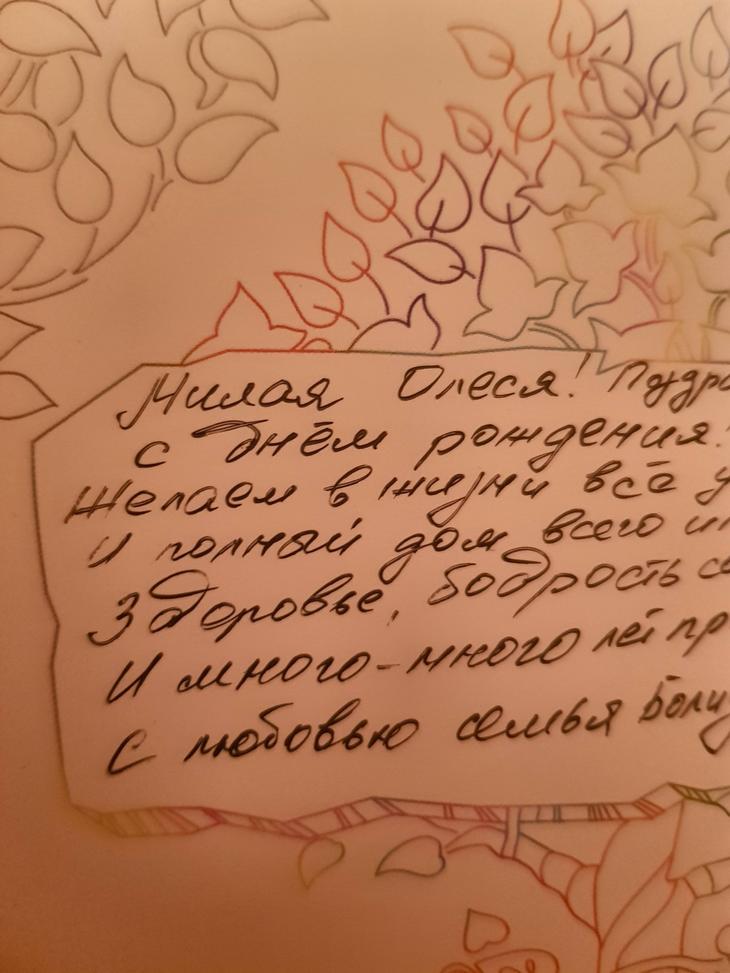 Милая Олеся!
с днём рождения!
Желаем в жизни всё
И полный дом всего
Здоровье, бодрость
И много-много лет
С любовью семья